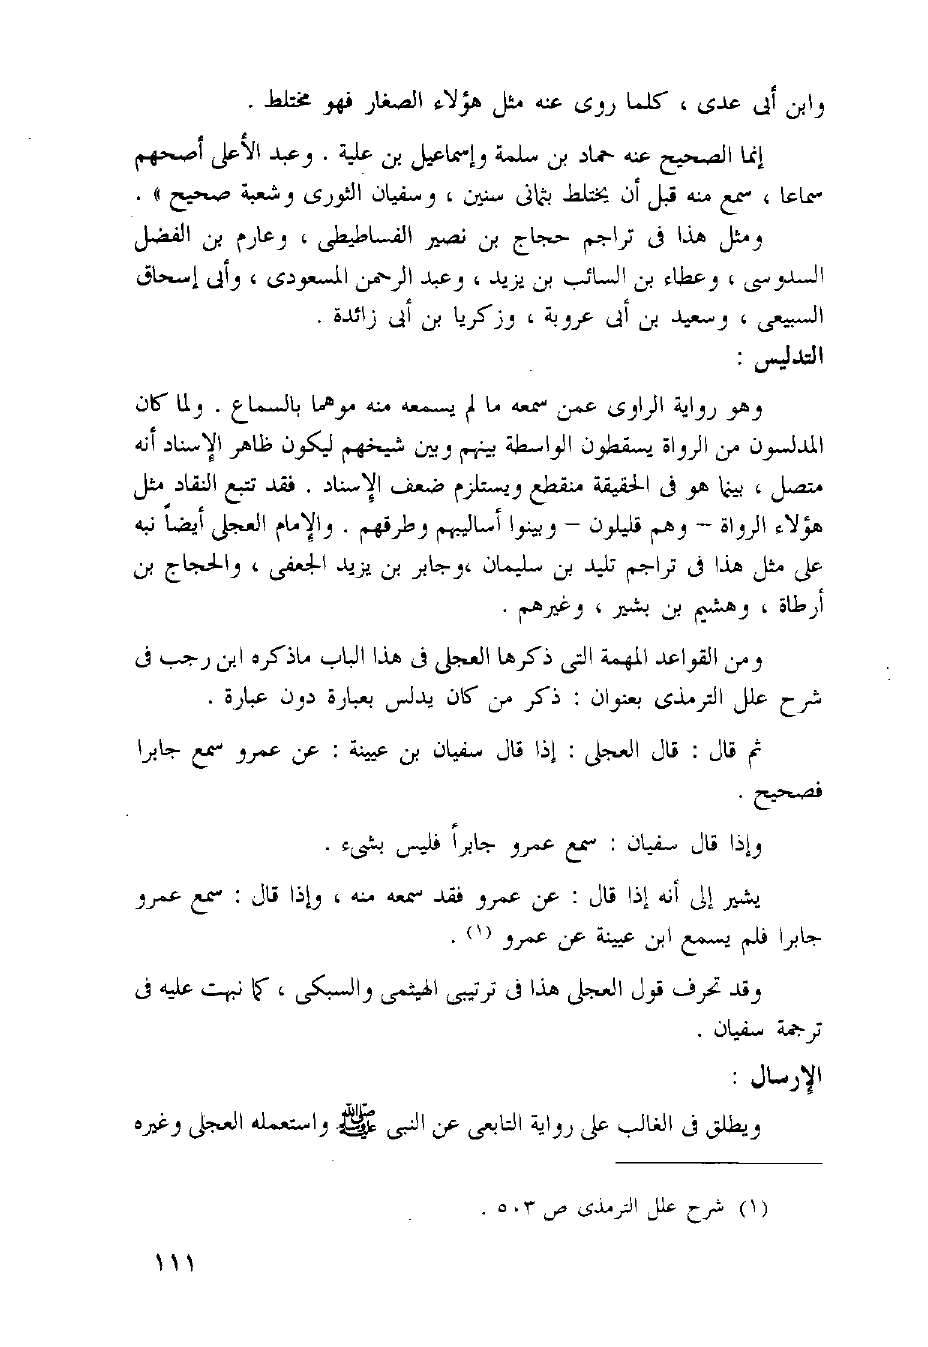 وابن أبى عدى ، كلما روى عنه مثل هؤلاء الصغار فهو مختلط .
إنما الصحيح عنه حماد بن سلمة وإسماعيل بن علية . وعبد الأعلى أصحهم
سماعا ، سمع منه قبل أن يختلط بثمانى سنين ، وسفيان الثورى وشعبة صحيح » .
ومثل هذا فى تراجم حجاج بن نصير الفساطيطى ، وعارم بن الفضل
السلوسى ، وعطاء بن السائب بن يزيد ، وعبد الرحمن المسعودى ، وأبى إسحاق
السبيعى ، وسعيد بن أبى عروبة ، وزكريا بن أبى زائدة .
التدليس :
وهو رواية الراوى عمن سمعه ما لم يسمعه منه موهما بالسماع . ولما كان
المدلسون من الرواة يسقطون الواسطة بينهم وبين شيخهم ليكون ظاهر الإسناد أنه
متصل ، بينما هو فى الحقيقة منقطع ويستلزم ضعف الإسناد . فقد تتبع النقاد مثل
هؤلاء الرواة – وهم قليلون – وبينوا أساليبهم وطرقهم . والإمام العجلى أيضاً نبه
على مثل هذا فى تراجم تليد بن سليمان ،وجابر بن يزيد الجعفى ، والحجاج بن
أرطاة ، وهشيم بن بشير ، وغيرهم .
ومن القواعد المهمة التى ذكرها العجلى فى هذا الباب ماذكره ابن رجب فى
شرح علل الترمذى بعنوان : ذكر من كان يدلس بعبارة دون عبارة .
ثم قال : قال العجلى : إذا قال سفيان بن عيينة : عن عمرو سمع جابرا
فصحيح .
وإذا قال سفيان : سمع عمرو جابراً فليس بشىء .
يشير إلى أنه إذا قال : عن عمرو فقد سمعه منه ، وإذا قال : سمع عمرو
جابرا فلم يسمع ابن عيينة عن عمرو (١) .
وقد تحرف قول العجلى هذا فى ترتيبى الهيثمى والسبكى ، كما نبهت عليه فى
ترجمة سفيان .
الإرسال :
ويطلق فى الغالب على رواية التابعى عن النبى ﷺ واستعمله العجلى وغيره
(١) شرح علل الترمذى ص ٥٠٣ .
١١١